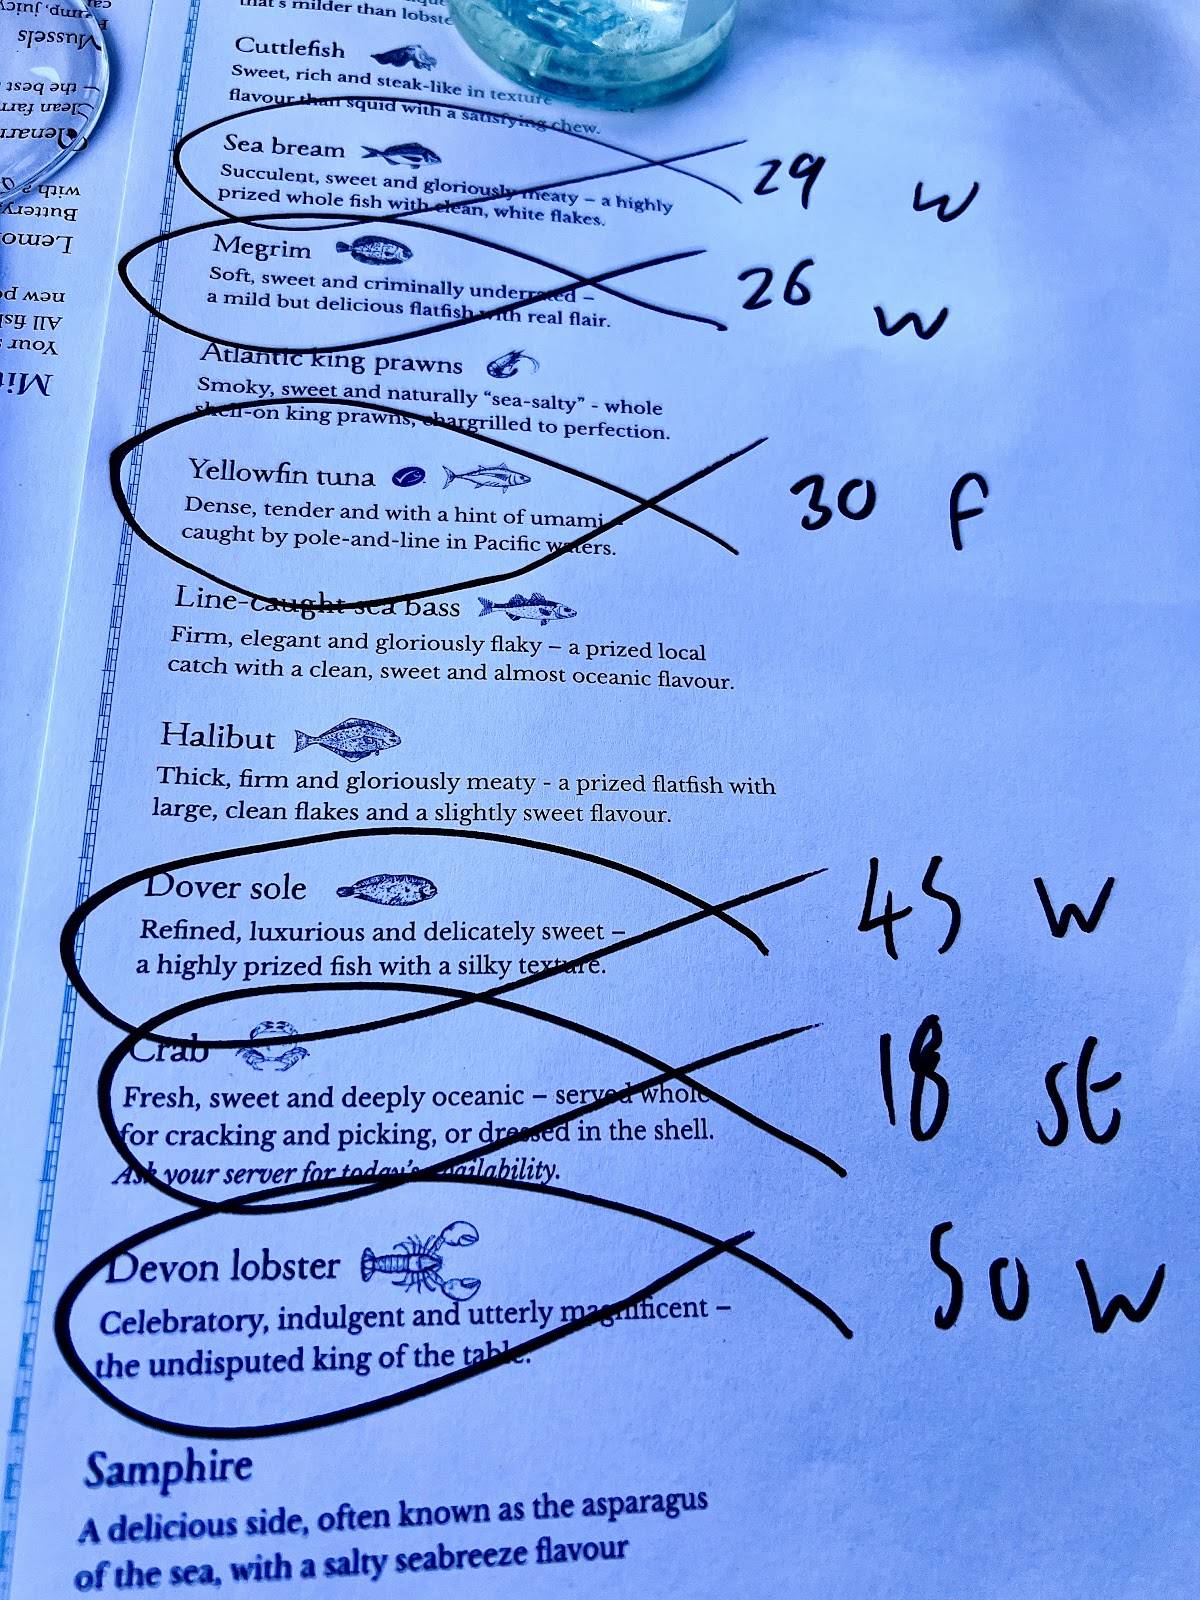 that's milder than lobste
Cuttlefish
Sweet, rich and steak-like in texture
flavour than squid with a satisfying chew.
Sea bream
Succulent, sweet and gloriously meaty – a highly
prized whole fish with clean, white flakes.
29 W
Megrim
Soft, sweet and criminally underrated –
a mild but delicious flatfish with real flair.
26 W
Atlantic king prawns
Smoky, sweet and naturally “sea-salty” - whole
shell-on king prawns, chargrilled to perfection.
Yellowfin tuna
Dense, tender and with a hint of umami
caught by pole-and-line in Pacific waters.
30 F
Line-caught sea bass
Firm, elegant and gloriously flaky – a prized local
catch with a clean, sweet and almost oceanic flavour.
Halibut
Thick, firm and gloriously meaty - a prized flatfish with
large, clean flakes and a slightly sweet flavour.
Dover sole
Refined, luxurious and delicately sweet –
a highly prized fish with a silky texture.
45 W
Crab
Fresh, sweet and deeply oceanic – served whole
for cracking and picking, or dressed in the shell.
Ask your server for today's availability.
18 St
Devon lobster
Celebratory, indulgent and utterly magnificent –
the undisputed king of the table.
50 W
Samphire
A delicious side, often known as the asparagus
of the sea, with a salty seabreeze flavour
Your
All fish
new po
Lemo
Buttery
with a
Clean farm
– the best
Mussels